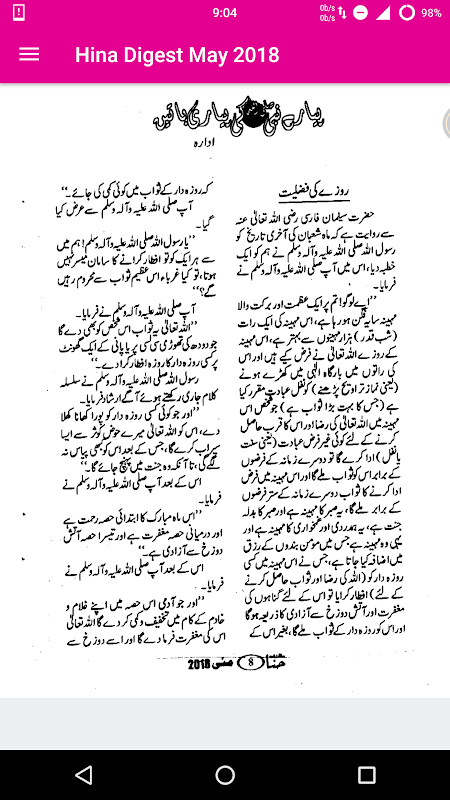 9:04
0b/s
0b/s
98%
Hina Digest May 2018
پیارے نبی کی پیاری باتیں
ادارہ
روزے کی فضیلت
حضرت سیلمان فارسی رضی اللہ تعالیٰ عنہ
سے روایت ہے کہ ماہ شعبان کی آخری تاریخ کو
رسول اللہ صلی اللہ علیہ وآلہ وسلم نے ہم کو ایک
خطبہ دیا، اس میں آپ صلی اللہ علیہ وآلہ وسلم نے
فرمایا۔
’’اے لوگو! تم پر ایک عظمت اور برکت والا
مہینہ سایہ فگن ہو رہا ہے، اس مہینہ کی ایک رات
(شب قدر) ہزار مہینوں سے بہتر ہے، اس مہینہ
کے روزے اللہ تعالیٰ نے فرض کیے ہیں اور اس
کی راتوں میں بارگاہ الٰہی میں کھڑے ہونے
(یعنی نماز تراویح پڑھنے) کو نفل عبادت مقرر کیا
ہے (جس کا بہت بڑا ثواب ہے) جو شخص اس
مہینہ میں اللہ تعالیٰ کی رضا اور اس کا قرب حاصل
کرنے کے لئے کوئی غیر فرض عبادت (یعنی سنت
یا نفل) ادا کرے گا تو دوسرے زمانہ کے فرضوں
کے برابر اس کو ثواب ملے گا اور اس مہینہ میں فرض
ادا کرنے کا ثواب دوسرے زمانہ کے ستر فرضوں
کے برابر ملے گا، یہ صبر کا مہینہ ہے اور صبر کا بدلہ
جنت ہے، یہ ہمدردی اور غمخواری کا مہینہ ہے اور
یہی وہ مہینہ ہے جس میں مومن بندوں کے رزق
میں اضافہ کیا جاتا ہے، جس نے اس مہینہ میں کسی
روزہ دار کو (اللہ کی رضا اور ثواب حاصل کرنے
کے لئے) افطار کرایا تو اس کے لئے گناہوں کی
مغفرت اور آتش دوزخ سے آزادی کا ذریعہ ہوگا
اور اس کو روزہ دار کے ثواب ملے گا، بغیر اس کے
کہ روزہ دار کے ثواب میں کوئی کمی کی جائے۔‘‘
آپ صلی اللہ علیہ وآلہ وسلم سے عرض کیا
گیا۔
’’یا رسول اللہ صلی اللہ علیہ وآلہ وسلم! ہم میں
سے ہر ایک کو تو افطار کرانے کا سامان میسر نہیں
ہوتا، تو کیا غرباء اس عظیم ثواب سے محروم رہیں
گے؟‘‘
آپ صلی اللہ علیہ وآلہ وسلم نے فرمایا۔
’’اللہ تعالیٰ یہ ثواب اس شخص کو بھی دے گا
جو دودھ کی تھوڑی سی لسی پر یا پانی کے ایک گھونٹ
پر کسی روزہ دار کا روزہ افطار کرا دے۔‘‘
رسول صلی اللہ علیہ وآلہ وسلم نے سلسلہ
کلام جاری رکھتے ہوئے آگے ارشاد فرمایا۔
’’اور جو کوئی کسی روزہ دار کو پورا کھانا کھلا
دے، اس کو اللہ تعالیٰ میرے حوض کوثر سے ایسا
سیراب کرے گا، جس کے بعد اس کو بھی پیاس نہ
لگے گی، تا آنکہ وہ جنت میں پہنچ جائے گا۔‘‘
اس کے بعد آپ صلی اللہ علیہ وآلہ وسلم نے
فرمایا۔
’’اس ماہ مبارک کا ابتدائی حصہ رحمت ہے
اور درمیانی حصہ مغفرت ہے اور تیسرا حصہ آتش
دوزخ سے آزادی ہے۔‘‘
اس کے بعد آپ صلی اللہ علیہ وآلہ وسلم نے
فرمایا۔
’’اور جو آدمی اس حصہ میں اپنے غلام و
خادم کے کام میں تخفیف و کمی کر دے گا اللہ تعالیٰ
اس کی مغفرت فرما دے گا اور اسے دوزخ سے
حنا 8 مئی 2018